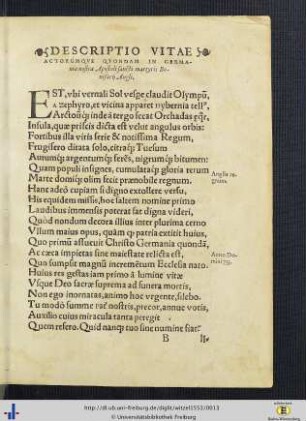 DESCRIPTIO VITAE
ACTORVMQVE QVONDAM IN GERMA-
nia nostra Apostoli sancti martyris Bo-
nifacij Angli.
EST, vbi vernali Sol vespe claudit Olympū,
A zephyro, et vicina apparet hybernia tellꝰ,
Arctoūqȝ inde à tergo secat Orchadas ęqr̄,
Insula, quæ priscis dicta est velut angulus orbis:
Fortibus illa viris serie & notissima Regum,
Frugifero ditata solo, citraqȝ Tuetum
Aurumqȝ argentumqȝ ferēs, nigrumqȝ bitumen:
Quam populi insignes, cumulataqȝ gloria rerum
Marte domiqȝ olim fecit prænobile regnum.
Hanc adeò cupiam si digno extollere versu,
His equidem missis, hoc saltem nomine primo
Laudibus immensis poterat sat digna videri,
Quòd nondum decora illius inter plurima cerno
Vllum maius opus, quàm qȝ patria extitit huius,
Quo primū assueuit Christo Germania quondā,
Ac cæca impietas sine maiestate relicta est,
Quas sumpsit magnū incremētum Ecclesia nato.
Huius res gestas iam primo à lumine vitæ
Vsque Deo sacræ suprema ad funera mortis,
Non ego inornatas, animo hoc vrgente, silebo.
Tu modò summe rac̄ nostris, precor, annue votis,
Auxilio cuius miracula tanta peregit
Quem refero. Quid nanqȝ tuo sine numine fiat?
Anglia re-
gnum.
Anno Do-
mini
B
http://dl.ub.uni-freiburg.de/diglit/witzel1553/0013
© Universitätsbibliothek Freiburg
Baden-Württemberg